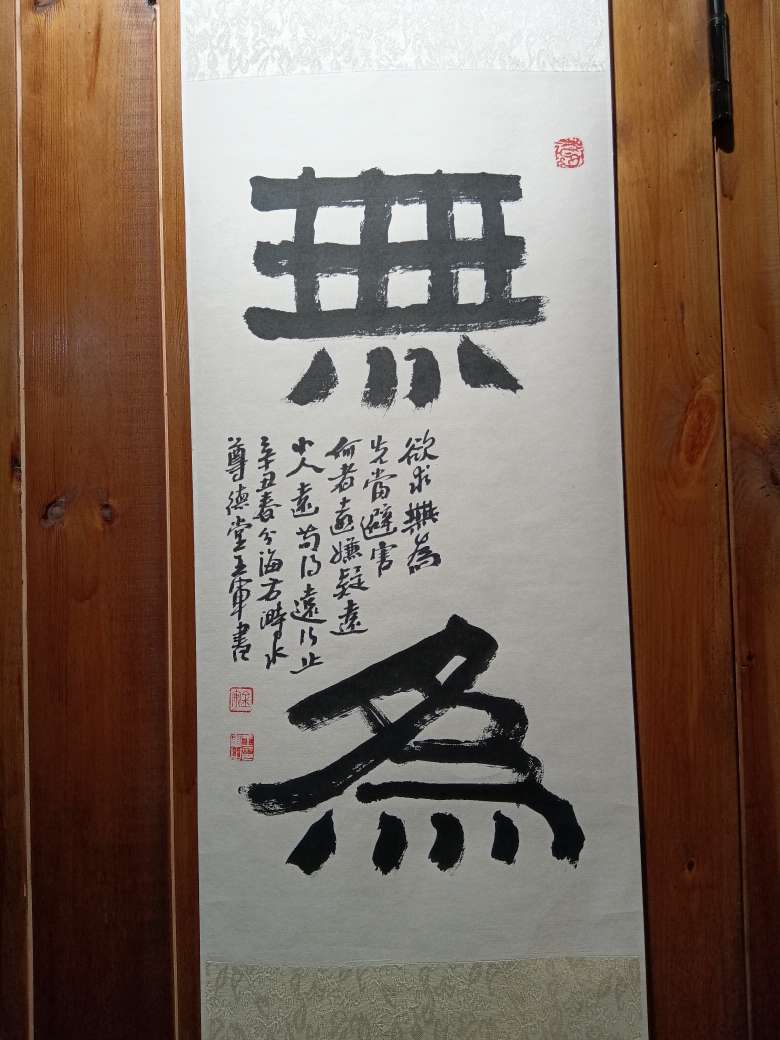 無為
欲求無為
先當避害
何者遠嫌疑遠
小人遠苟得遠行止
辛丑春分海方水
尊德堂王軍書